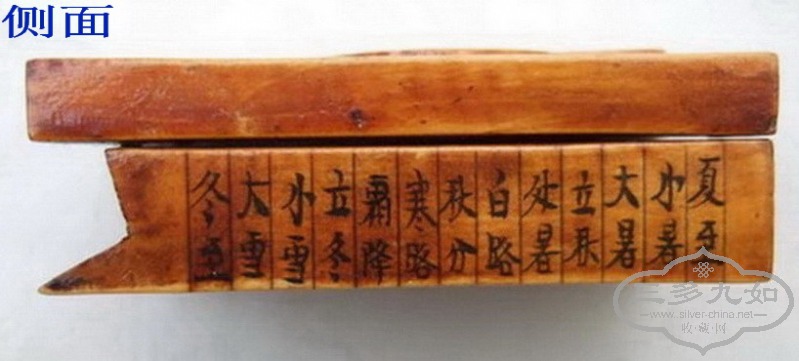 侧面
夏至
小暑
大暑
立秋
处暑
白路
秋分
寒路
霜降
立冬
小雪
大雪
冬至
三多九如
www.silver-china.net
收藏·网